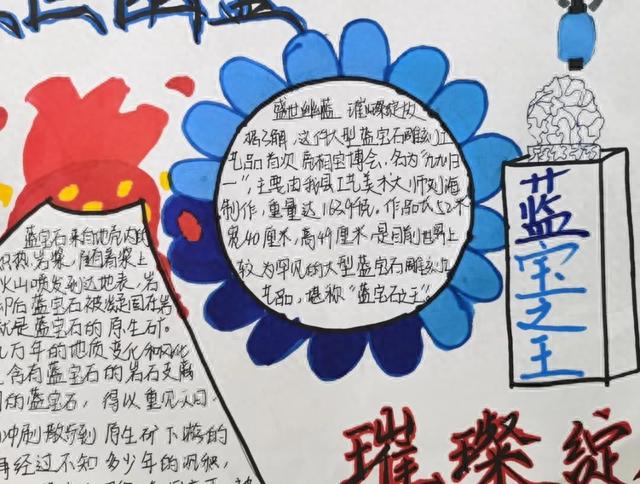 盛世幽蓝 璀璨绽放
据了解,这件大型蓝宝石雕刻工
艺品首次亮相宝博会,名为“九九归
一”,主要由我县工艺美术大师刘海
制作,重量达163.9千
作品长52米
宽40厘米,高49厘米,是目前世界上
较为罕见的大型蓝宝石雕刻工
艺品,堪称“蓝宝石之王”。
蓝宝石来自地底内的
炽热岩浆,随着岩浆上
火山喷发到达地表,岩
却后蓝宝石被凝固在岩
就是蓝宝石的原生矿。
几万年的地质变化和风化
含有蓝宝石的岩石支离
的蓝宝石,得以重见天日。
冲刷散落到原生矿下游的
再经过不知多少年的沉积,
蓝宝之王
璀璨绽